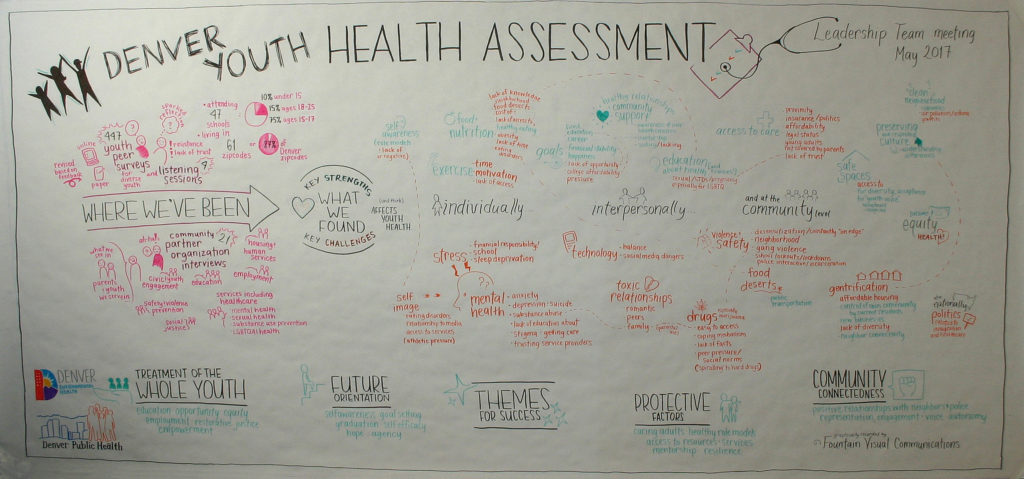 DENVER YOUTH HEALTH ASSESSMENT
Leadership Team meeting
May 2017
online
447
youth
peer
surveys
paper
for diverse
youth
revised
based on
feedback
sparked
reflection
resistance
lack of trust
and
9
listening
sessions
attending
47
schools
living in
61
zipcodes
10% under 15
15% ages 18-25
75% ages 15-17
of
Denver
zipcodes
WHERE WE'VE BEEN
what we
see in
parents
youth
we serve in
community
partner
organization
interviews
21
housing
human
services
employment
civic/youth
engagement
education
safety/violence
prevention
social
justice
services including
healthcare
mental health
sexual health
substance use prevention
LGBTQIA health
KEY STRENGTHS
WHAT
WE
FOUND
KEY CHALLENGES
(and think)
AFFECTS
YOUTH
HEALTH
individually
self
awareness
(role models
lack of
or negative)
food+
nutrition
lack of knowledge
neighborhood
food deserts
cost of
lack of access
healthy eating
obesity
lack of time
eating
disorders
exercise
time
motivation
lack of access
stress
financial responsibility
school
sleep deprivation
self
image
eating disorders
relationship to media
access to services
(athletic pressure)
mental
health
anxiety
depression · suicide
substance abuse
lack of education about
stigma - getting care
trusting service providers
interpersonally...
healthy relationships
community
support
goals
education
career
financial stability
happiness
lack of opportunity
college affordability
pressure
education
about health
sexual/STDs/pregnancy
especially for LGBTQ
technology
balance
social media dangers
toxic
relationships
romantic
peers
family
and at the
community level
access to care
proximity
insurance/politics
affordability
legal status
young adults
not covered by parents
lack of trust
clean
neighborhood
preserving
culture
safe
spaces
access to
for diversity, acceptance
for youth voice
equity
HEALTH
violence
safety
desensitizing/constantly "on edge"
neighborhood
gang violence
school lockouts/lockdowns
police interaction/incarceration
food
deserts
public
transportation
drugs
easy to access
coping mechanism
lack of facts
peer pressure/
social norms
(spiraling to hard drugs)
gentrification
affordable housing
control of own community
by current residents
new businesses
lack of diversity
neighbor connectivity
nationality
politics
DENVER
ENVIRONMENTAL
HEALTH
Denver Public Health
TREATMENT OF THE
WHOLE YOUTH
education · opportunity · equity
employment · restorative justice
empowerment
FUTURE
ORIENTATION
self awareness · goal setting
graduation · self efficacy
hope · agency
THEMES
FOR SUCCESS
PROTECTIVE
FACTORS
caring adults · healthy role models
access to resources · services
mentorship · resilience
COMMUNITY
CONNECTEDNESS
positive relationships with neighbors + police
representation, empowerment · voice · autonomy
graphically recorded by
Fountain Visual Communications